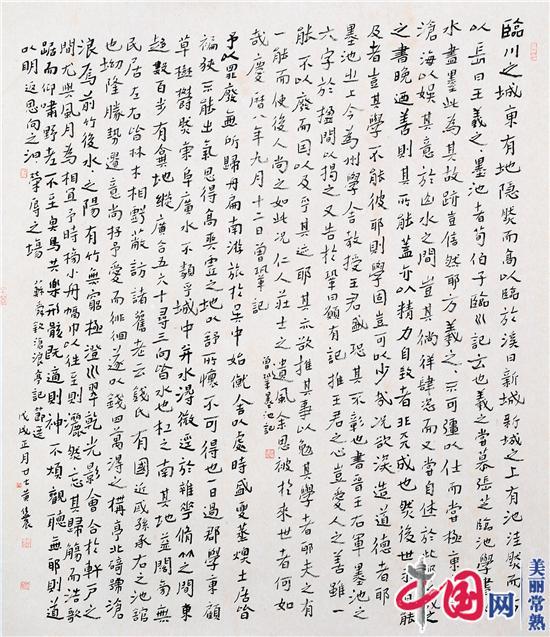 臨川之城東有地隱然而高以臨於溪曰新城新城之上有池洼然而方
以長曰王羲之之墨池者荀伯子臨川記云也羲之嘗慕張芝臨池學書池
水盡墨此為其故跡豈信然耶方羲之之不可彊以仕而嘗極東方
滄海以娛其意於山水之間豈其徜徉肆恣而又嘗自休於此耶羲之
之書晚廼善則其所能蓋亦以精力自致者非天成也然後世未有能
及者豈其學不能彼耶則學固豈可以少哉況欲深造道德者耶
墨池之上今為州學舍教授王君盛恐其不彰也書晉王右軍墨池之
六字於楹間以揭之又告於鞏曰願有記推王君之心豈愛人之善雖一
能不以廢而因以及乎其迹耶其亦欲推其事以勉其學者耶夫人之有
一能而使後人尚之如此況仁人莊士之遺風余思被於來世者何如
哉慶曆八年九月十二日曾鞏記
曾鞏墨池記
予以罪廢無所歸扁舟南游旅於吳中始僦舍以處時盛夏蒸燠土居皆
褊狹不能出氣思得高爽虛之地以舒所懷不可得也一日過郡學東顧
草樹鬱然崇阜廣水不類乎城中並水得微徑於雜花脩竹之間東
趨數百步有棄地縱廣合五六十尋三向皆水也杠之南其地益闊旁無
民居左右皆林木相虧蔽訪諸舊老云錢氏有國近戚孫承右之池館
也坳隆勝勢遺意尚存予愛而徘徊遂以錢四萬得之構亭北碕號滄
浪焉前竹後水水之陽有竹無窮極澄川翠乾光影會合於軒戶之
間尤與風月為相宜予時榜小舟幅巾以往至則灑然忘其歸觴而浩歌
踞而仰嘯野老不至魚鳥共樂形骸既適則神不煩觀聽無邪則道
以明返思向之汩汩榮辱之場
蘇舜欽滄浪亭記節選
戊戌正月廿七
美丽常熟
中国网